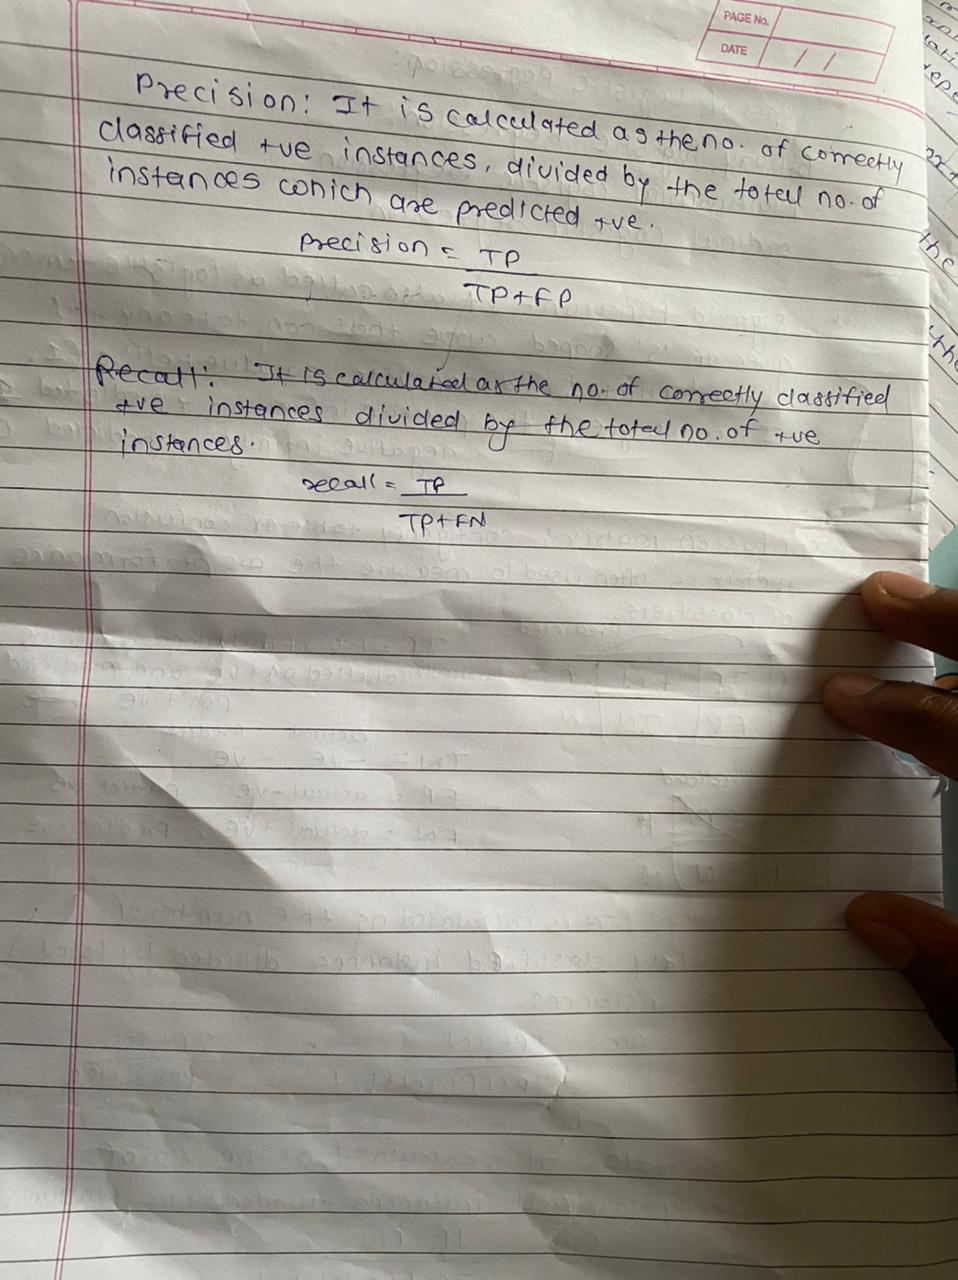 PAGE No.
DATE / /
Precision: It is calculated as the no. of correctly
classified +ve instances, divided by the total no. of
instances which are predicted +ve.
precision = TP
TP+FP
Recall: It is calculated as the no. of correctly classified
+ve instances divided by the total no. of +ve
instances.
recall = TP
TP+FN
the
the